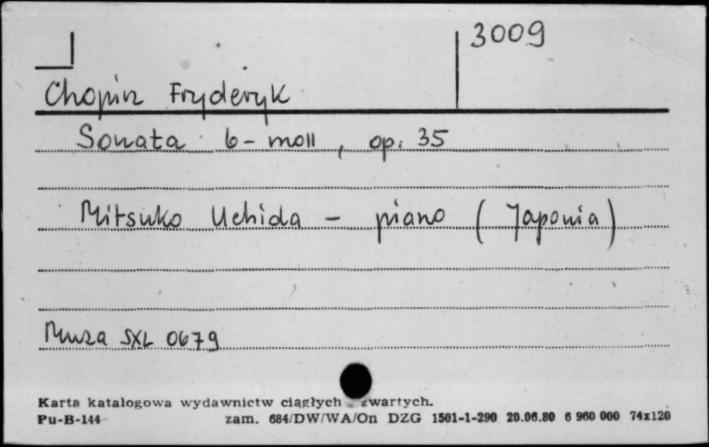 3009
Chopin Fryderyk
Sonata b-moll, op. 35
Mitsuko Uchida - piano (Japonia)
Muza SXL 0679
Karta katalogowa wydawnictw ciągłych zwartych.
Pu-B-144 zam. 684/DW/WA/On DZG 1501-1-290 20.06.80 6 960 000 74x120